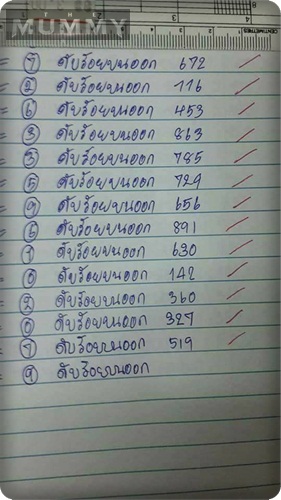 MUMMY
CENTIMETRES
= ⑦ ดับร้อยบนออก 672 /
= ② ดับร้อยบนออก 116 /
= ⑥ ดับร้อยบนออก 453 /
= ③ ดับร้อยบนออก 863 /
= ③ ดับร้อยบนออก 785 /
= ⑤ ดับร้อยบนออก 729 /
= ⑨ ดับร้อยบนออก 656 /
= ⑥ ดับร้อยบนออก 891 /
= ① ดับร้อยบนออก 630 /
= ⓪ ดับร้อยบนออก 142 /
= ② ดับร้อยบนออก 360 /
= ⓪ ดับร้อยบนออก 327 /
= ⑦ ดับร้อยบนออก 519 /
= ⑨ ดับร้อยบนออก